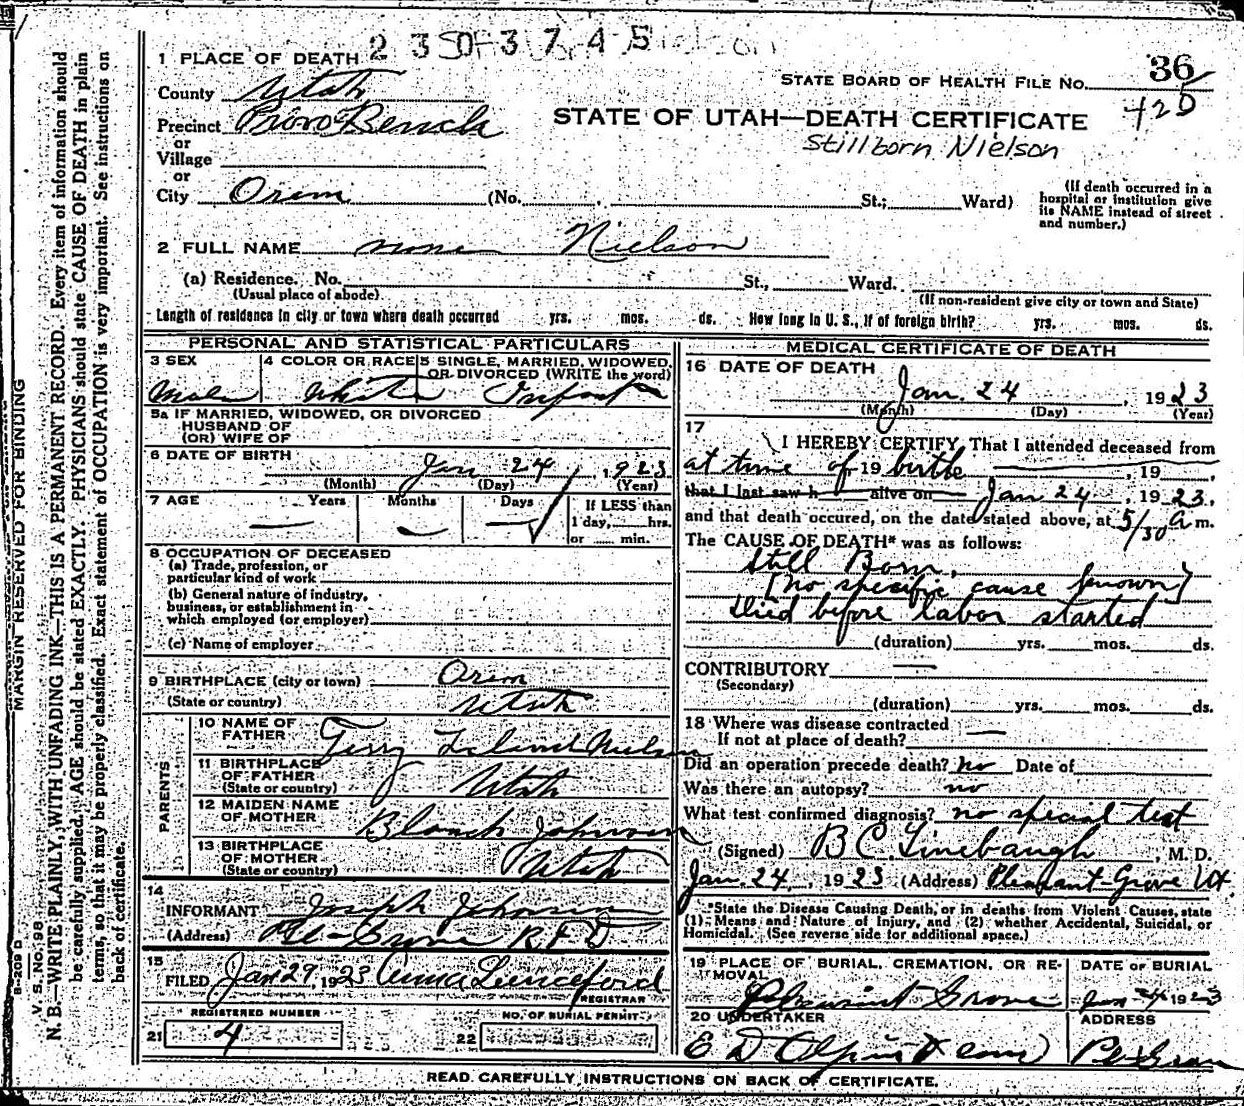 2 3 0 3 7 4 5
1 PLACE OF DEATH
STATE BOARD OF HEALTH FILE NO. 36
42D
County Utah
STATE OF UTAH—DEATH CERTIFICATE
Precinct Provo Bench
Stillborn Nielson
or
Village
or
City Orem (No. St.; Ward)
(If death occurred in a hospital or institution give its NAME instead of street and number.)
2 FULL NAME none Nielson
(a) Residence. No. St., Ward.
(Usual place of abode)
(If non-resident give city or town and State)
Length of residence in city or town where death occurred yrs. mos. ds. How long in U. S., if of foreign birth? yrs. mos. ds.
PERSONAL AND STATISTICAL PARTICULARS
3 SEX
Male
4 COLOR OR RACE
White
5 SINGLE, MARRIED, WIDOWED, OR DIVORCED (WRITE the word)
Infant
5a IF MARRIED, WIDOWED, OR DIVORCED
HUSBAND OF
(OR) WIFE OF
6 DATE OF BIRTH
Jan 24, 1923
(Month) (Day) (Year)
7 AGE Years Months Days
If LESS than
1 day, hrs.
or min.
8 OCCUPATION OF DECEASED
(a) Trade, profession, or
particular kind of work
(b) General nature of industry,
business, or establishment in
which employed (or employer)
(c) Name of employer
9 BIRTHPLACE (city or town) Orem
(State or country) Utah
PARENTS
10 NAME OF
FATHER Terry Leland Nielson
11 BIRTHPLACE
OF FATHER
(State or country) Utah
12 MAIDEN NAME
OF MOTHER Blanch Johnson
13 BIRTHPLACE
OF MOTHER
(State or country) Utah
14
INFORMANT Joseph Johnson
(Address) Pl-Grove R F D
15
FILED Jan 29, 1923 Anna Lunceford
REGISTRAR
REGISTERED NUMBER
21 4
NO. OF BURIAL PERMIT
22
MEDICAL CERTIFICATE OF DEATH
16 DATE OF DEATH
Jan. 24, 1923
(Month) (Day) (Year)
17
I HEREBY CERTIFY, That I attended deceased from
at time of 19 birth , 19 ,
that I last saw h alive on Jan 24, 1923,
and that death occured, on the date stated above, at 5/30 a m.
The CAUSE OF DEATH* was as follows:
Still Born,
(no specific cause known)
died before labor started
(duration) yrs. mos. ds.
CONTRIBUTORY
(Secondary)
(duration) yrs. mos. ds.
18 Where was disease contracted
If not at place of death?
Did an operation precede death? no Date of
Was there an autopsy? no
What test confirmed diagnosis? no special test
(Signed) B C Linebaugh, M. D.
Jan. 24, 1923 (Address) Pleasant Grove Ut.
*State the Disease Causing Death, or in deaths from Violent Causes, state
(1) Means and Nature of Injury, and (2) whether Accidental, Suicidal, or
Homicidal. (See reverse side for additional space.)
19 PLACE OF BURIAL, CREMATION, OR RE-
MOVAL
Pleasant Grove
DATE OF BURIAL
Jan 24 1923
20 UNDERTAKER
E D Olpin
ADDRESS
Pl-Grove
READ CAREFULLY INSTRUCTIONS ON BACK OF CERTIFICATE.
MARGIN RESERVED FOR BINDING
B-209 D
V. S. NO. 98
N. B.—WRITE PLAINLY, WITH UNFADING INK—THIS IS A PERMANENT RECORD. Every item of information should
be carefully supplied. AGE should be stated EXACTLY. PHYSICIANS should state CAUSE OF DEATH in plain
terms, so that it may be properly classified. Exact statement of OCCUPATION is very important. See instructions on
back of certificate.